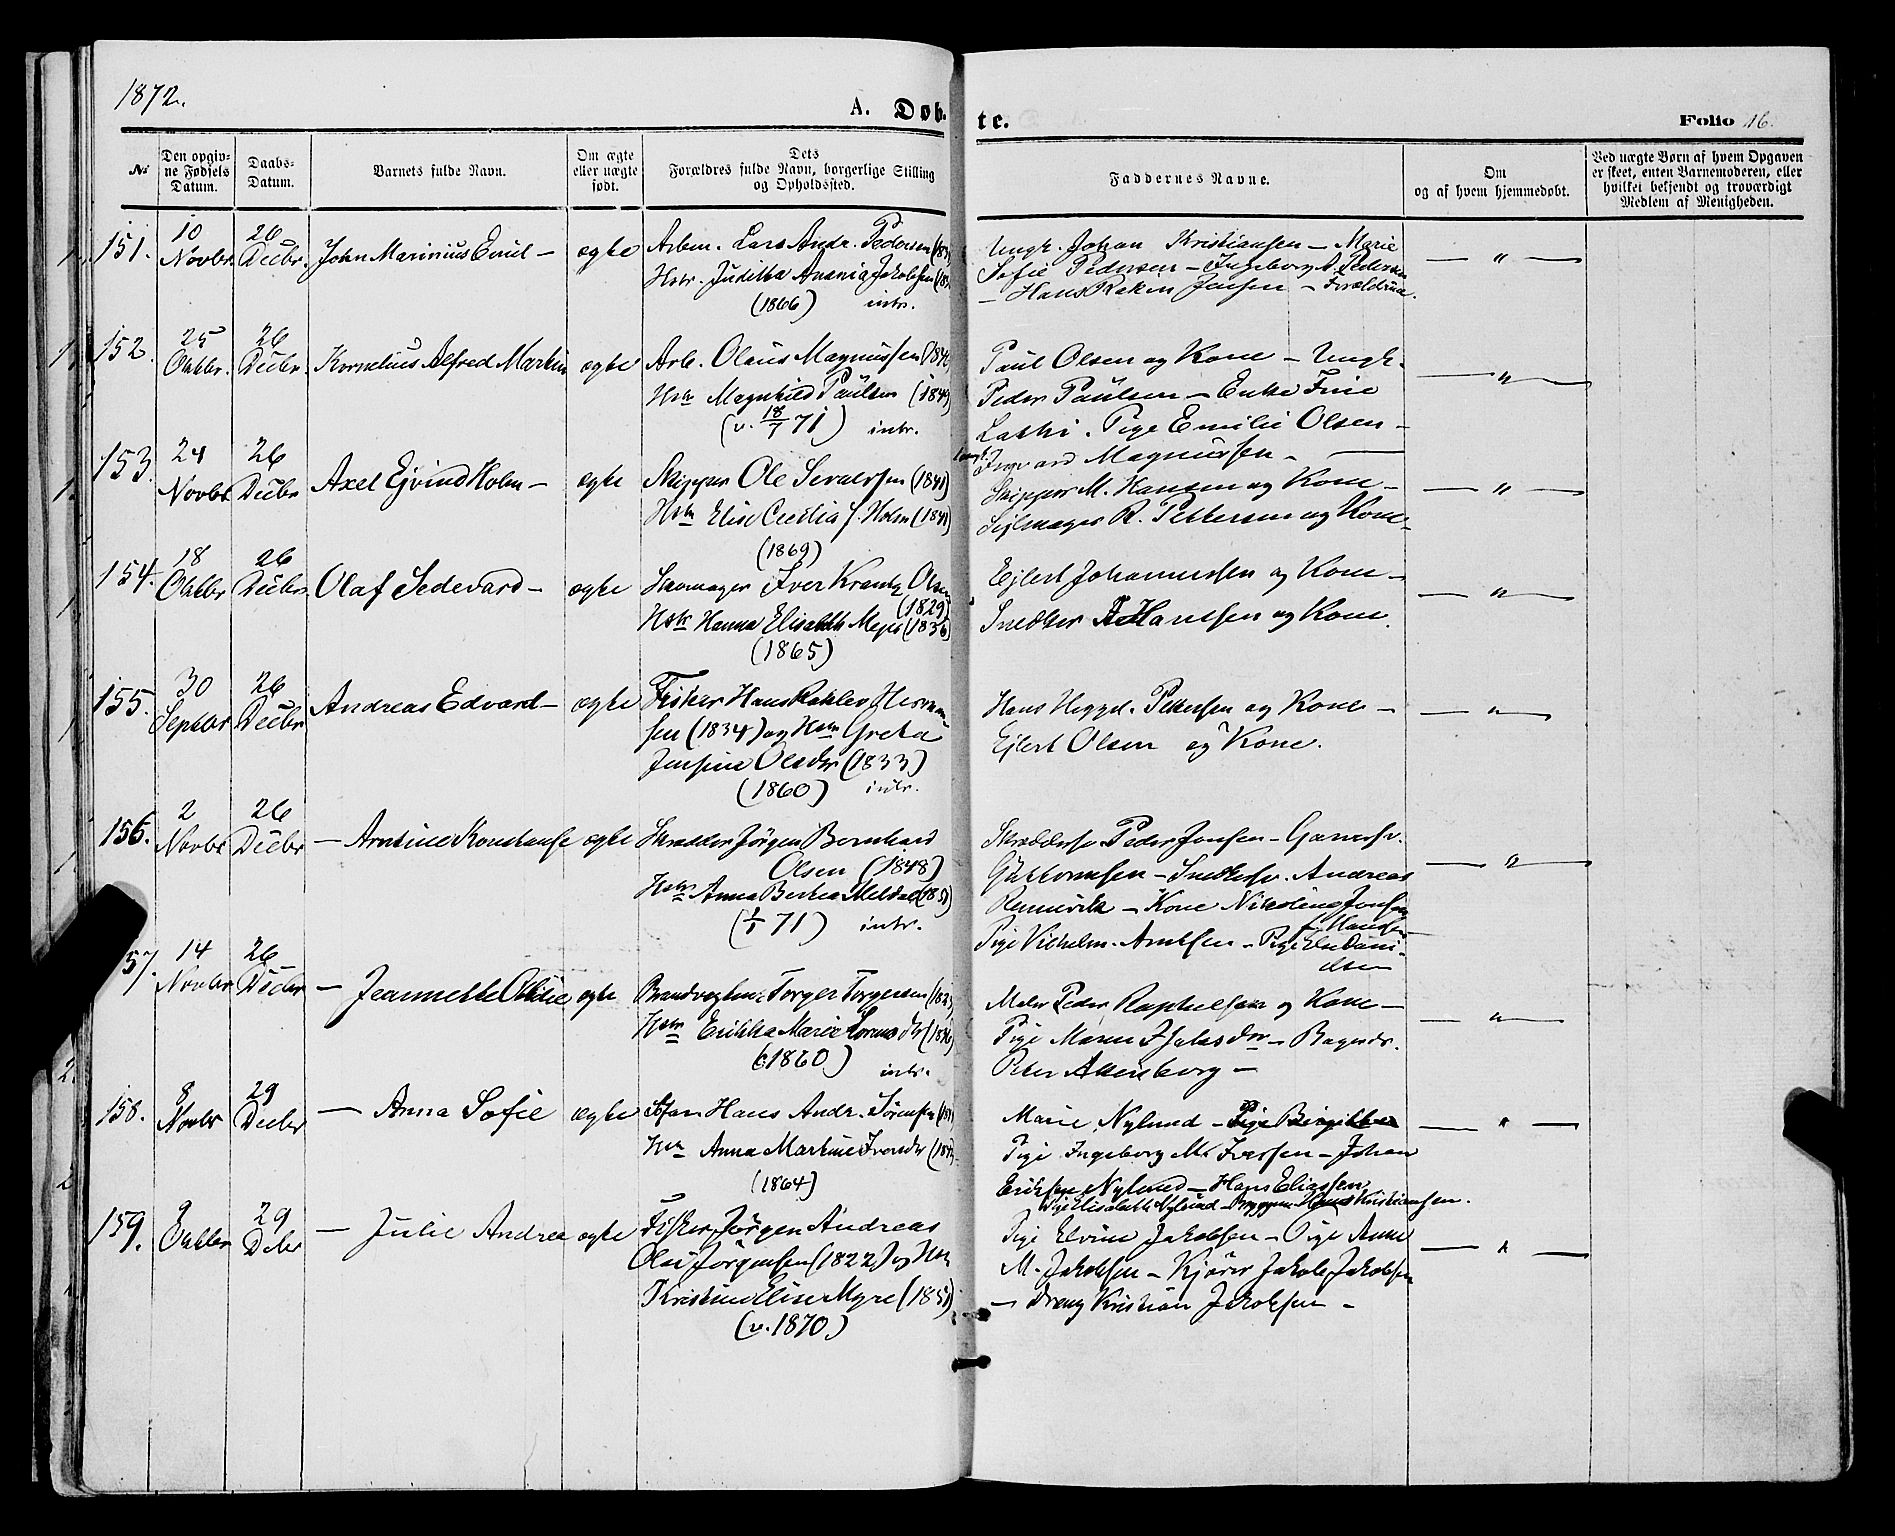 1872.
A. Døb-
te.
Folio 16.
№
Den opgiv-
ne Fødsels
Datum.
Daabs-
Datum.
Barnets fulde Navn.
Om ægte
eller uægte
født.
Dets
Forældres fulde Navn, borgerlige Stilling
og Opholdssted.
Faddernes Navne.
Om
og af hvem hjemmedøbt.
Ved uægte Børn af hvem Opgaven
er skeet, enten Barnemoderen, eller
hvilket bekjendt og troværdigt
Medlem af Menigheden.
151.
10
Novbr.
26
Decbr.
John Marinius Emil —
ægte
Arbm. Lars Andr. Pedersen
Hstr. Juditha Anania Jakobsen
(1866) intr.
Ungk. Johan Kristiansen — Marie
Sofie Pedersen — Ingeborg A. Pedersen
— Hans Jensen — Forældrene.
— " —
152.
25
Oktbr.
26
Decbr.
Kornelius Alfred Martin
ægte
Arb. Olaus Magnussen
Hstr Magnhild Paulsen (1849)
(v. 18/7 71) intr.
Paul Olsen og Kone — Ungk.
Peder Paulsen — Enke Fine
Pige Emilie Olsen —
Ingvard Magnussen —
— " —
153.
24
Novbr
26
Decbr
Axel Ejvind Holm —
ægte
Skipper Ole Sivertsen (1841)
Hstr Elise Cecilia f. Holm
(1869)
Skipper M. Hansen og Kone —
Sejlmager R. Pettersen og Kone —
— " —
154.
18
Oktbr
26
Decbr.
Olaf Sedevard —
ægte
Skomager Iver Krantz Olsen
(1829)
Hstr Hanna Elisabeth Mejer (1836)
(1865)
Ejlert Johannessen og Kone —
Snedker A Hansen og Kone.
— " —
155.
30
Septbr
26
Decbr
Andreas Edvard —
ægte
Fisker Hans Herman-
sen (1834) og Hstr Greta
Jensine Olsdtr (1833)
(1860) intr.
Hans Pettersen og Kone —
Ejlert Olsen og Kone.
— " —
156.
2
Novbr
26
Decbr
— Arntine Konstanse
ægte
Skrædder Jørgen Bernhard
Olsen (1848)
Hstr Anna Berthea
(1/1 71) intr.
Skræddersv. Peder Jensen — Garversv.
Guttormsen — Snedkersv. Andreas
Rennevik — Kone Nikoline Jensen
f. Hansen
Pige Vilhelm. Arntsen — Pige Else Dani-
elsen
— " —
57.
14
Novbr
26
Decbr
— Jeannette Otilie
ægte
Brandvagtm. Torger Torgersen
Hstr Erikka Marie
(1860) intr.
Maler Peder Raphelsen og Kone —
Pige Maren Isaksdtr — Bagersv.
Peter Altersborg —
— " —
158.
8
Novbr
29
Decbr
— Anna Sofie
ægte
Hans Andr. Sørensen
Hstr Anna Martine Iversdtr
(1864)
Marie Nylund —
Pige Ingeborg M. Iversen — Johan
Eriksen Nylund — Hans Eliassen
Pige Elisabeth Nylund — Kristiansen.
— " —
159.
9
Oktbr
29
Debr
— Julie Andrea
ægte
Fisker Jørgen Andreas
Olai Jørgensen (1822) og Hstr
Kristine Elise Myre
(v. 1870)
Pige Elvine Jakobsen — Pige Anne
M. Jakobsen — Kjører Jakob Jakobsen
— Dreng Kristian Jakobsen —
— " —